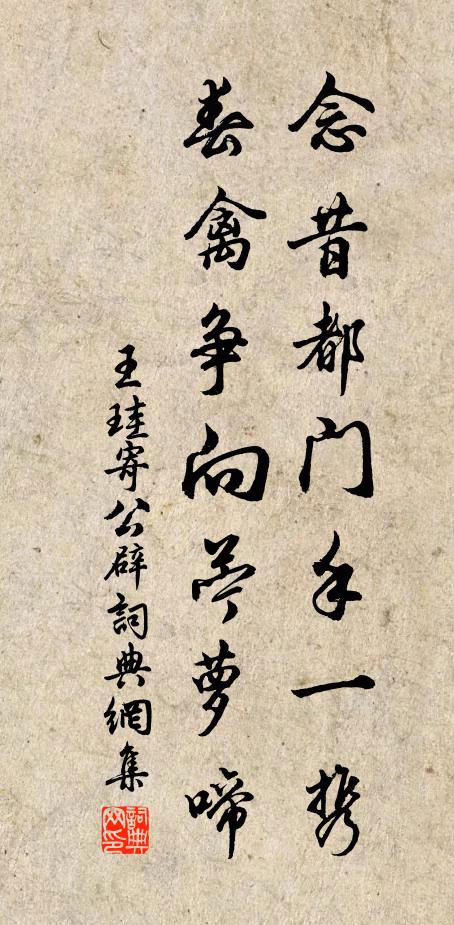 念昔都門手一携
春禽争向苧萝啼
王珪寄公辟詞典網集
詞典网印